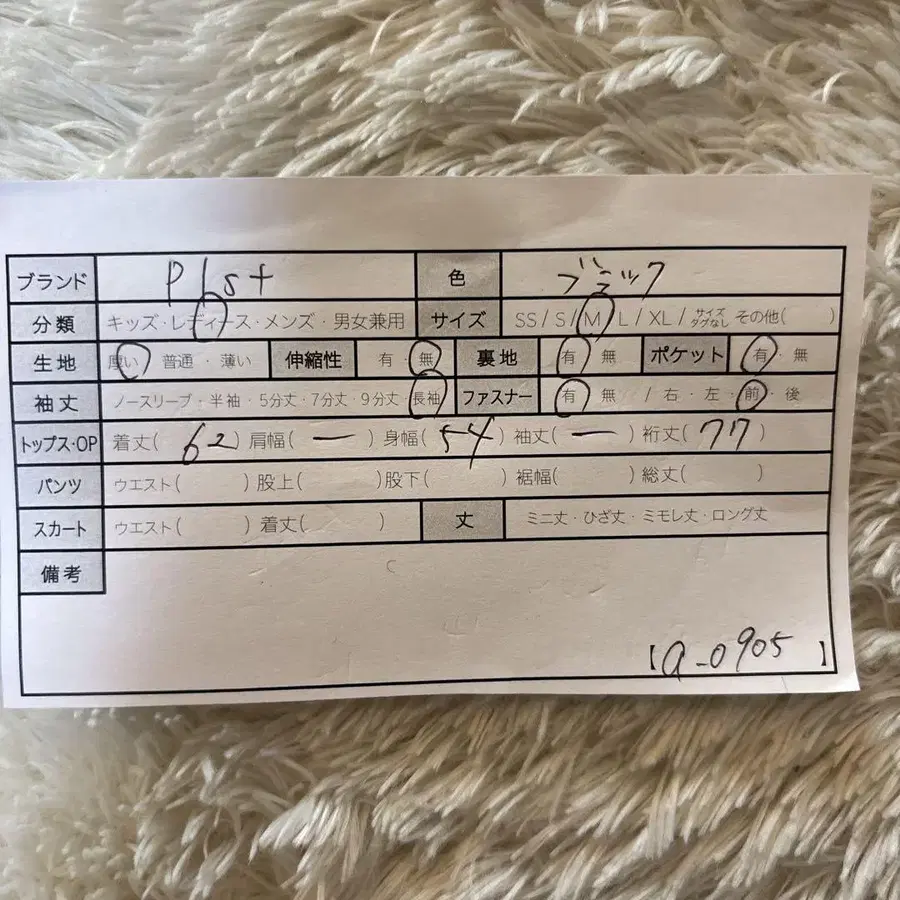 ブランド Plst 色 ブラック
分類 キッズ・レディース・メンズ・男女兼用 サイズ SS / S / M / L / XL / サイズタグなし その他( )
生地 厚い・普通・薄い 伸縮性 有・無 裏地 有・無 ポケット 有・無
袖丈 ノースリーブ・半袖・5分丈・7分丈・9分丈・長袖 ファスナー 有・無 / 右・左・前・後
トップス・OP 着丈( 62 ) 肩幅( ー ) 身幅( 54 ) 袖丈( ー ) 裄丈( 77 )
パンツ ウエスト( ) 股上( ) 股下( ) 裾幅( ) 総丈( )
スカート ウエスト( ) 着丈( ) 丈 ミニ丈・ひざ丈・ミモレ丈・ロング丈
備考
【a-0905】